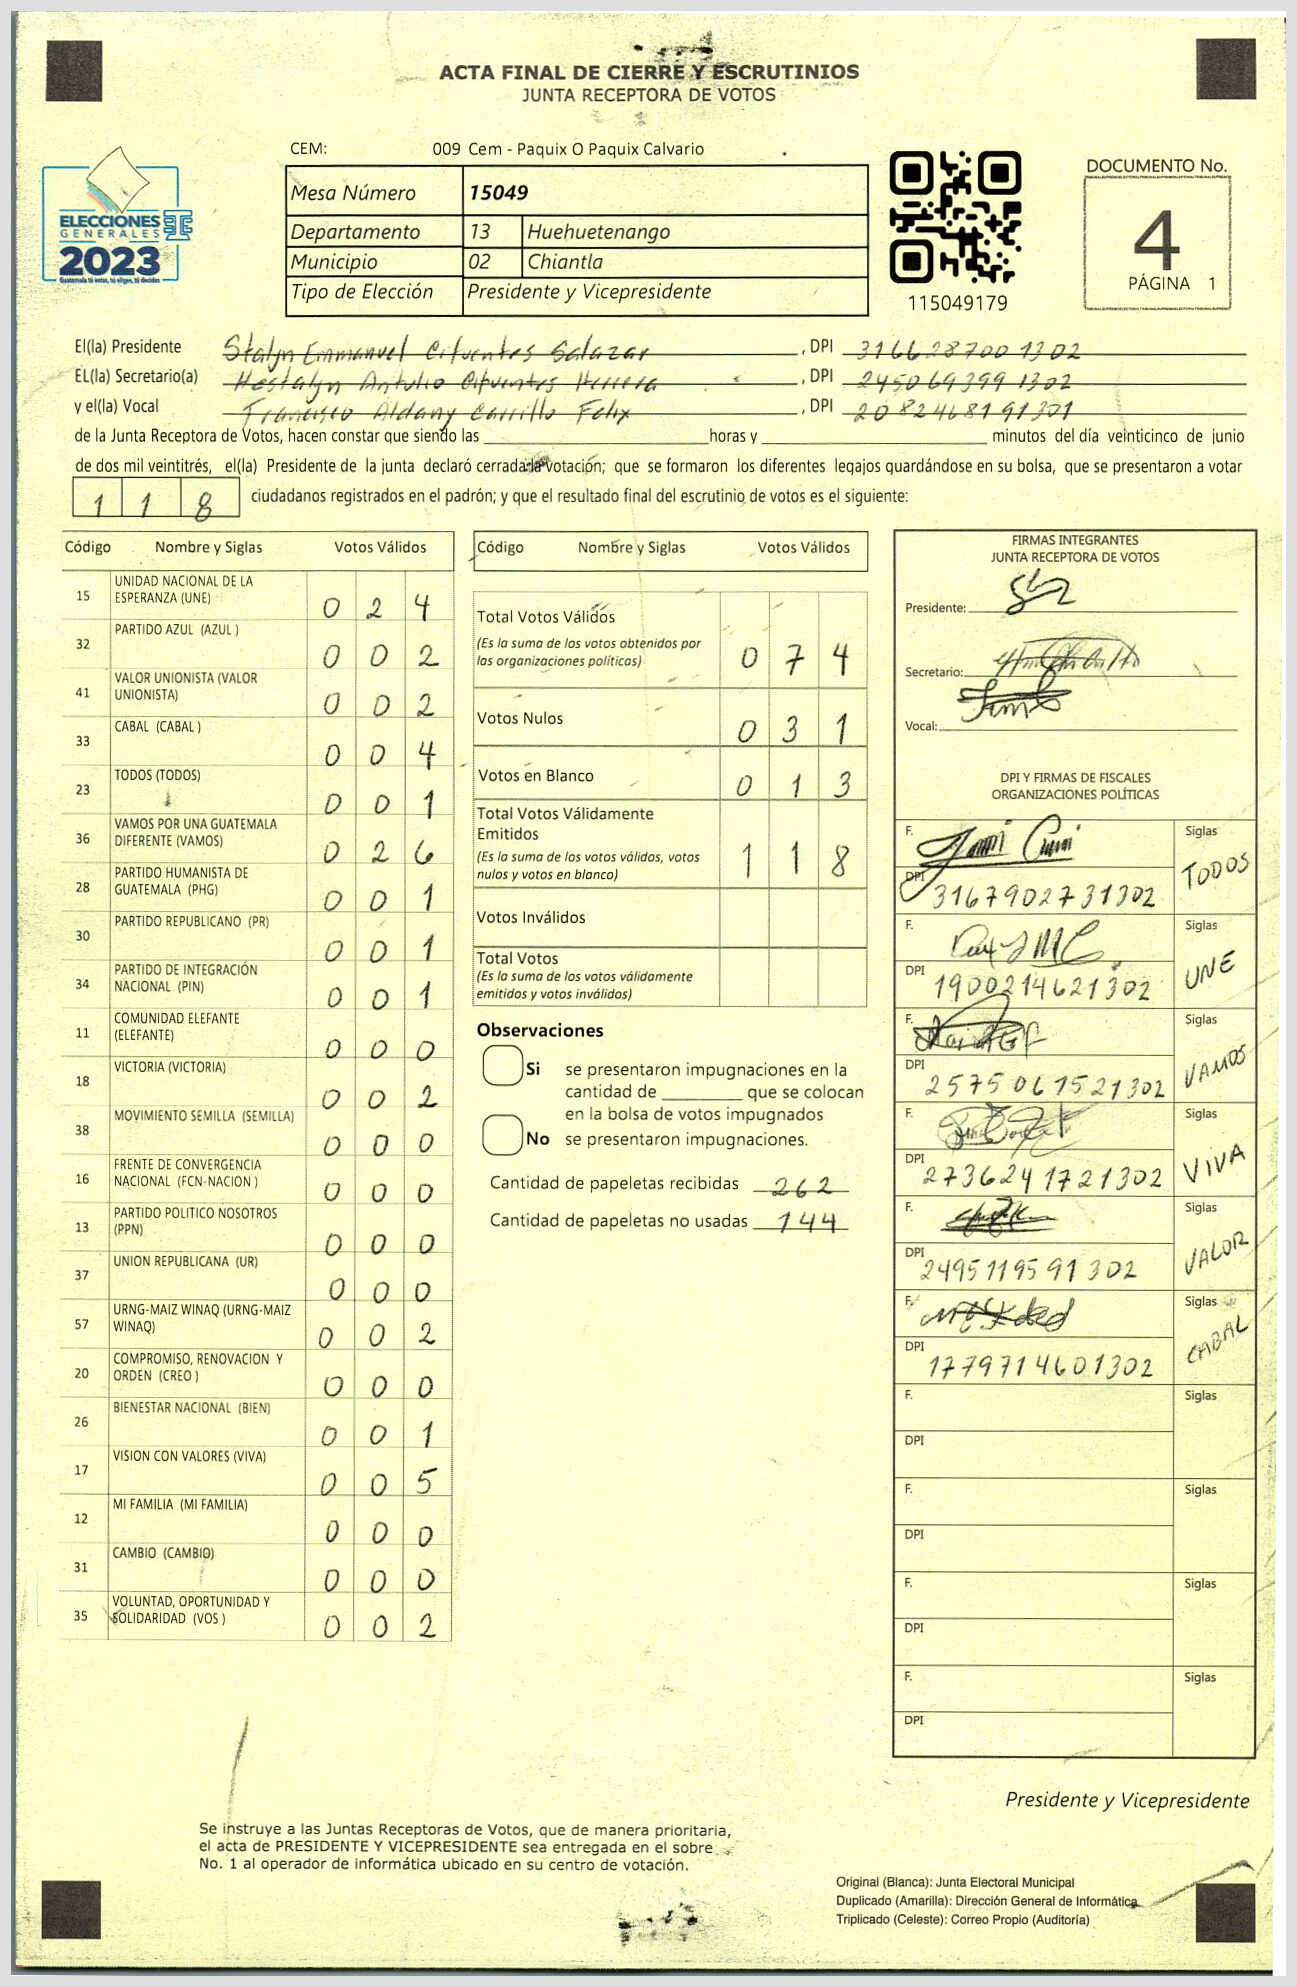 ACTA FINAL DE CIERRE Y ESCRUTINIOS
JUNTA RECEPTORA DE VOTOS
CEM: 009 Cem - Paquix O Paquix Calvario
ELECCIONES
GENERALES
2023
Guatemala tú votas, tú eliges, tú decides
Mesa Número 15049
Departamento 13 Huehuetenango
Municipio 02 Chiantla
Tipo de Elección Presidente y Vicepresidente
115049179
DOCUMENTO No.
4
PÁGINA 1
El(la) Presidente Stalyn Emmanuel Cifuentes Salazar, DPI 3166287001302
EL(la) Secretario(a) Hestalyn Antulio Cifuentes Herrera, DPI 2450693991302
y el(la) Vocal Francisco Aldany Carrillo Felix, DPI 2082468191301
de la Junta Receptora de Votos, hacen constar que siendo las ____ horas y ____ minutos del día veinticinco de junio
de dos mil veintitrés, el(la) Presidente de la junta declaró cerrada la votación; que se formaron los diferentes legajos guardándose en su bolsa, que se presentaron a votar
118 ciudadanos registrados en el padrón; y que el resultado final del escrutinio de votos es el siguiente:
Código Nombre y Siglas Votos Válidos
15 UNIDAD NACIONAL DE LA ESPERANZA (UNE) 0 2 4
32 PARTIDO AZUL (AZUL ) 0 0 2
41 VALOR UNIONISTA (VALOR UNIONISTA) 0 0 2
33 CABAL (CABAL ) 0 0 4
23 TODOS (TODOS) 0 0 1
36 VAMOS POR UNA GUATEMALA DIFERENTE (VAMOS) 0 2 6
28 PARTIDO HUMANISTA DE GUATEMALA (PHG) 0 0 1
30 PARTIDO REPUBLICANO (PR) 0 0 1
34 PARTIDO DE INTEGRACIÓN NACIONAL (PIN) 0 0 1
11 COMUNIDAD ELEFANTE (ELEFANTE) 0 0 0
18 VICTORIA (VICTORIA) 0 0 2
38 MOVIMIENTO SEMILLA (SEMILLA) 0 0 0
16 FRENTE DE CONVERGENCIA NACIONAL (FCN-NACION ) 0 0 0
13 PARTIDO POLITICO NOSOTROS (PPN) 0 0 0
37 UNION REPUBLICANA (UR) 0 0 0
57 URNG-MAIZ WINAQ (URNG-MAIZ WINAQ) 0 0 2
20 COMPROMISO, RENOVACION Y ORDEN (CREO ) 0 0 0
26 BIENESTAR NACIONAL (BIEN) 0 0 1
17 VISION CON VALORES (VIVA) 0 0 5
12 MI FAMILIA (MI FAMILIA) 0 0 0
31 CAMBIO (CAMBIO) 0 0 0
35 VOLUNTAD, OPORTUNIDAD Y SOLIDARIDAD (VOS ) 0 0 2
Código Nombre y Siglas Votos Válidos
Total Votos Válidos 0 7 4
(Es la suma de los votos obtenidos por
las organizaciones políticas)
Votos Nulos 0 3 1
Votos en Blanco 0 1 3
Total Votos Válidamente
Emitidos 1 1 8
(Es la suma de los votos válidos, votos
nulos y votos en blanco)
Votos Inválidos
Total Votos
(Es la suma de los votos válidamente
emitidos y votos inválidos)
Observaciones
Si se presentaron impugnaciones en la
cantidad de ____ que se colocan
en la bolsa de votos impugnados
No se presentaron impugnaciones.
Cantidad de papeletas recibidas 262
Cantidad de papeletas no usadas 144
FIRMAS INTEGRANTES
JUNTA RECEPTORA DE VOTOS
Presidente:
Secretario:
Vocal:
DPI Y FIRMAS DE FISCALES
ORGANIZACIONES POLÍTICAS
F. Siglas TODOS
DPI 3167902731302
F. Siglas UNE
DPI 1900214621302
F. Siglas VAMOS
DPI 2575061521302
F. Siglas VIVA
DPI 2736241721302
F. Siglas VALOR
DPI 2495119591302
F. Siglas CABAL
DPI 1779714601302
F. Siglas
DPI
F. Siglas
DPI
F. Siglas
DPI
F. Siglas
DPI
Presidente y Vicepresidente
Se instruye a las Juntas Receptoras de Votos, que de manera prioritaria,
el acta de PRESIDENTE Y VICEPRESIDENTE sea entregada en el sobre
No. 1 al operador de informática ubicado en su centro de votación.
Original (Blanca): Junta Electoral Municipal
Duplicado (Amarilla): Dirección General de Informática
Triplicado (Celeste): Correo Propio (Auditoría)